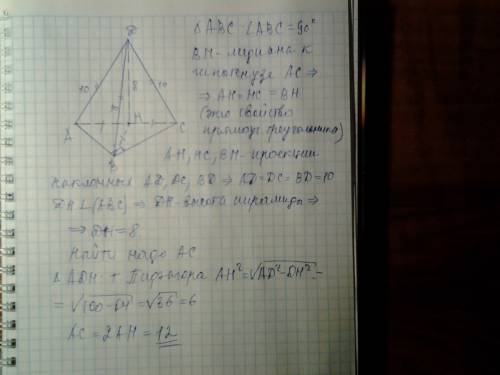 D
10
8
10
A
H
C
B
△ABC ∠ABC = 90°
BH - медиана к
гипотенузе AC ⇒
⇒ AH = HC = BH
(это свойство
прямоуг. треугольника)
AH, HC, BH - проекции
наклонных AD, DC, BD ⇒ AD = DC = BD = 10
DH ⊥ (ABC) ⇒ DH - высота пирамиды ⇒
⇒ DH = 8
Найти надо AC
△ADH т Пифагора AH² = √AD² - DH² =
= √100 - 64 = √36 = 6
AC = 2AH = 12